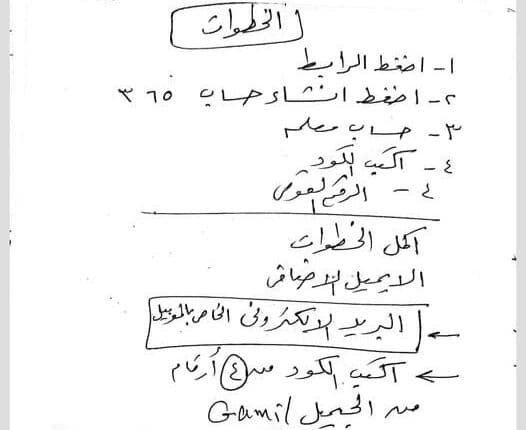 الخطوات
١- اضغط الرابط
٢- اضغط انشاء حساب ٣٦٥
٣- حساب معلم
٤- اكتب الكود
٤- الرقم القومى
اكمل الخطوات
الايميل الاضافى
البريد الالكترونى الخاص بالموبيل
← اكتب الكود من ٤ أرقام
من الجميل / Gamil